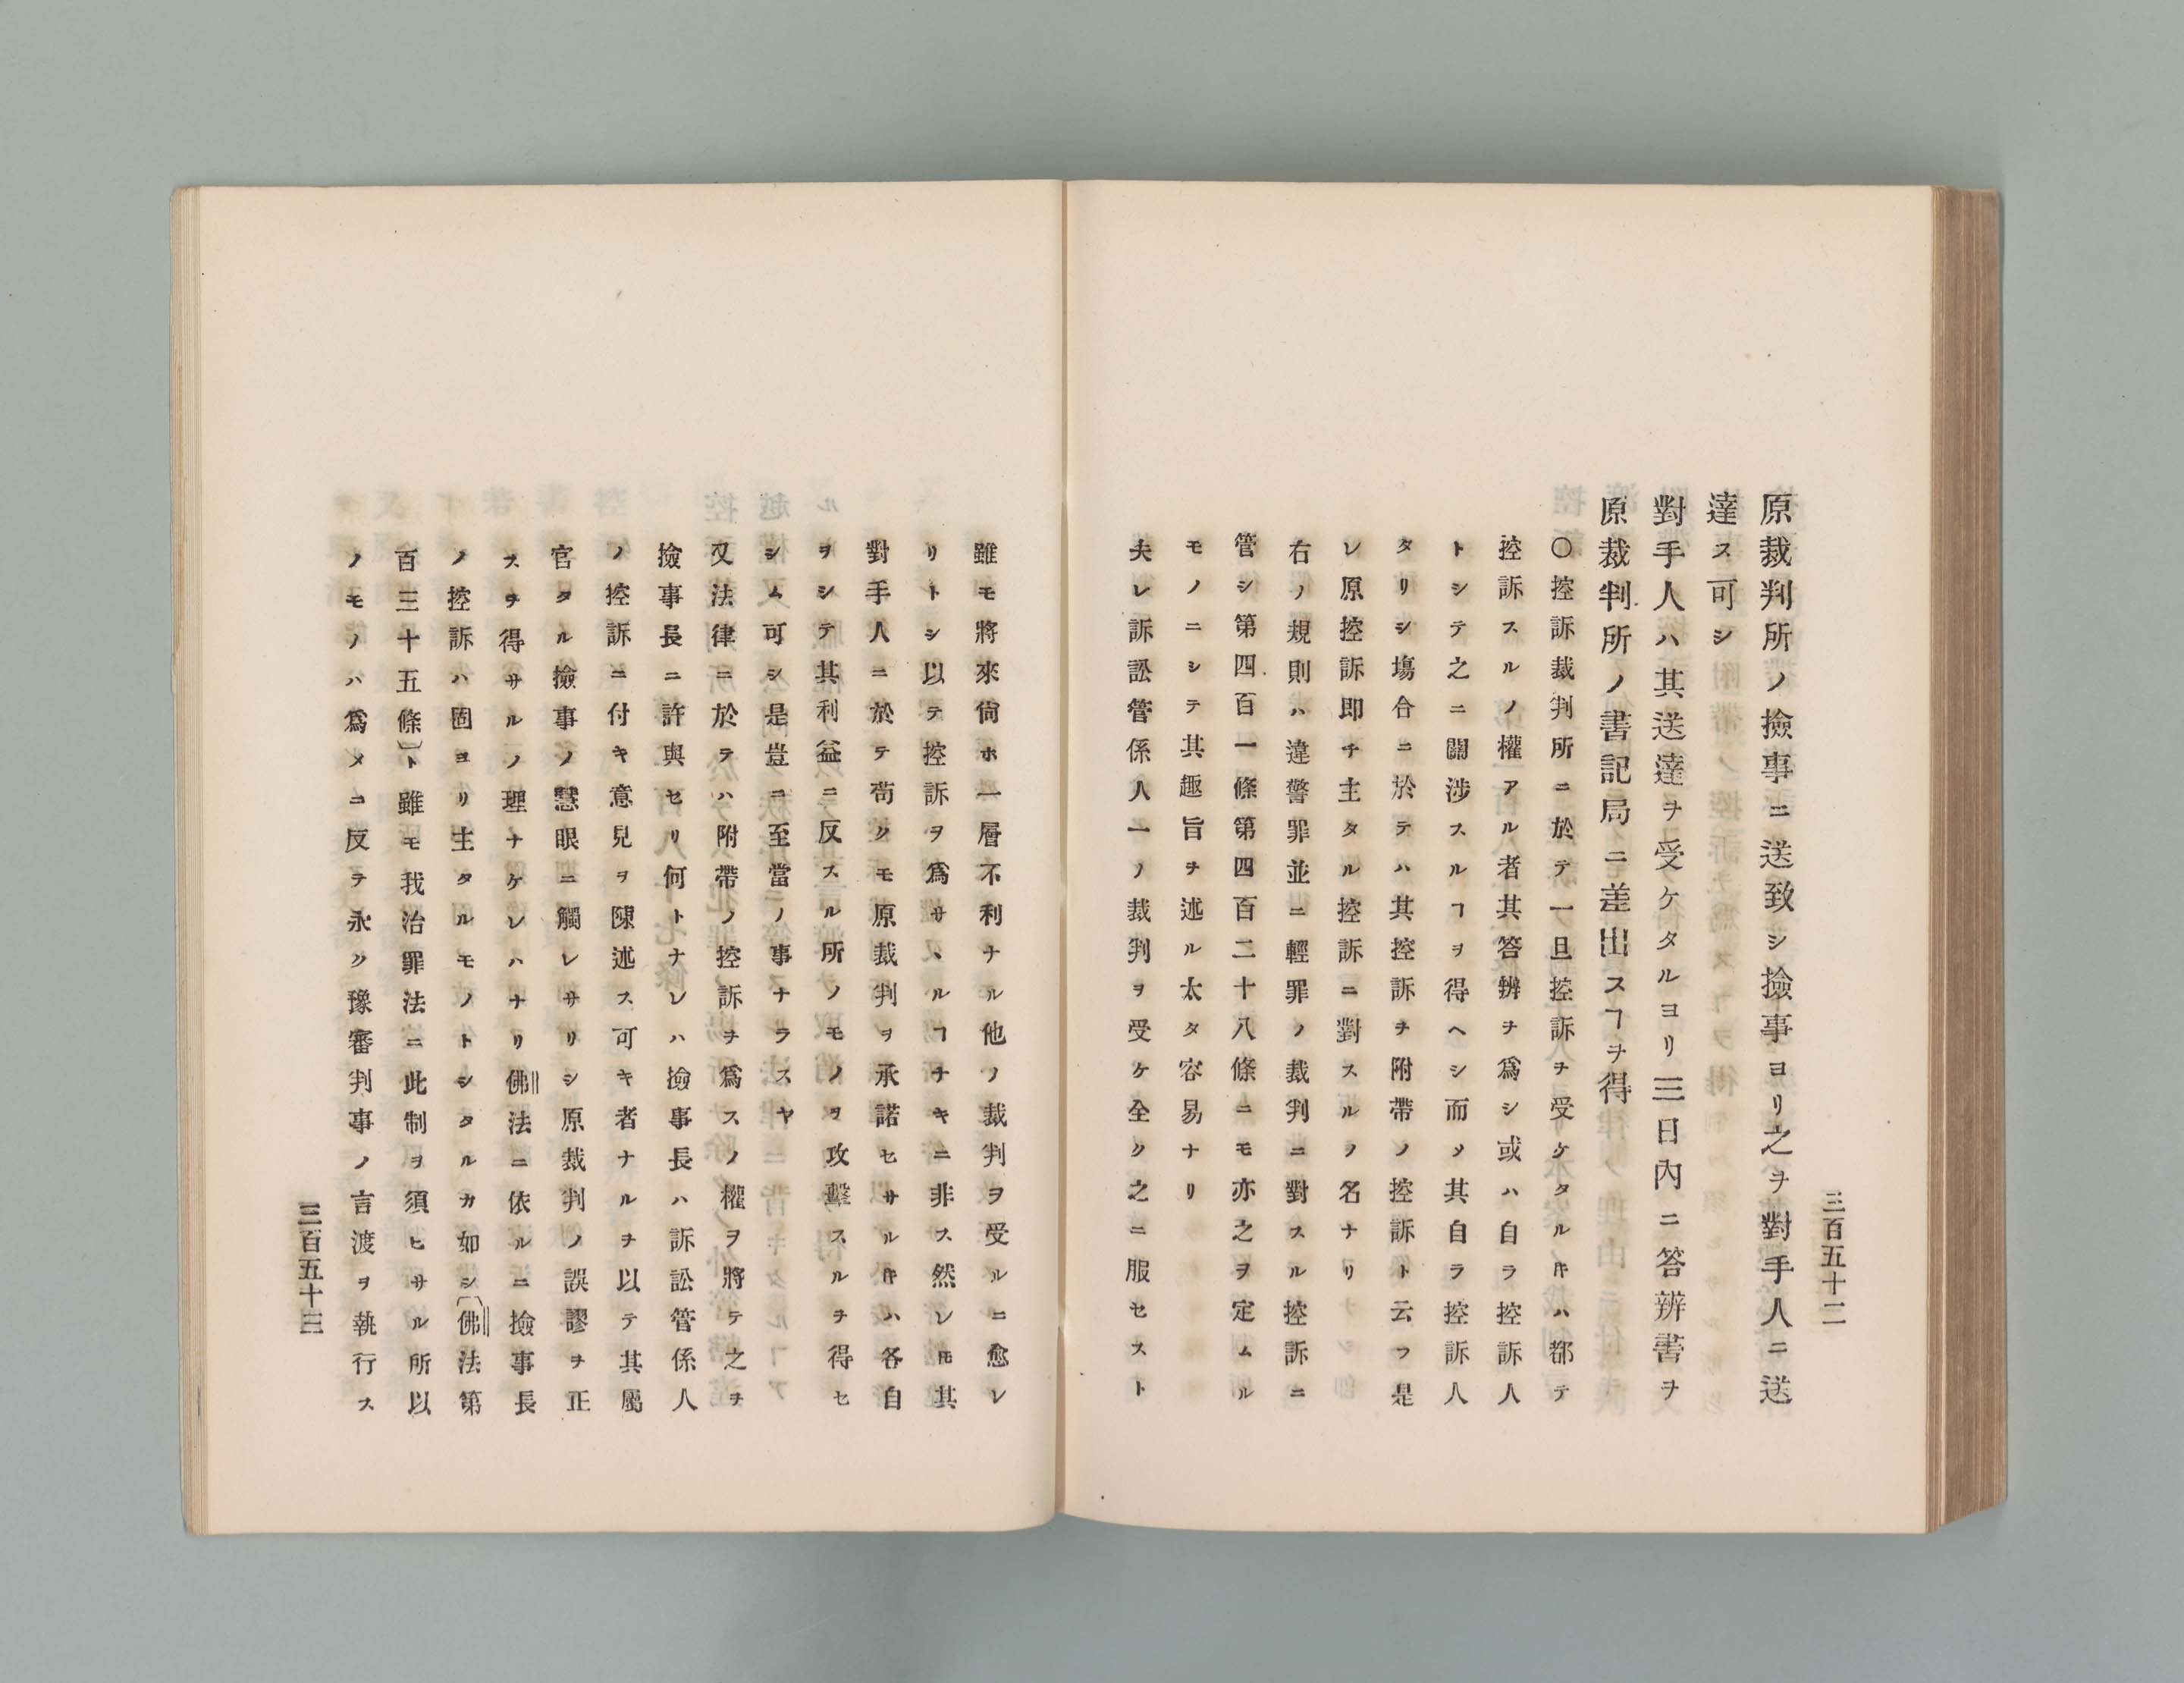 三百五十二
原裁判所ノ撿事ニ送致シ撿事ヨリ之ヲ對手人ニ送
達ス可シ
對手人ハ其送達ヲ受ケタルヨリ三日內ニ答辨書ヲ
原裁判所ノ書記局ニ差出スヿヲ得
〇控訴裁判所ニ於テ一旦控訴ヲ受ケタルキハ都テ
控訴スルノ權アル者其答辨ヲ爲シ或ハ自ラ控訴人
トシテ之ニ關涉スルヿヲ得ヘシ而〆其自ラ控訴人
タリシ塲合ニ於テハ其控訴ヲ附帶ノ控訴ト云フ是
レ原控訴即チ主タル控訴ニ對スルノ名ナリ
右ノ規則ハ違警罪並ニ輕罪ノ裁判ニ對スル控訴ニ
管シ第四百一條第四百二十八條ニモ亦之ヲ定ムル
モノニシテ其趣旨ヲ述ル太タ容易ナリ
夫レ訴訟管係人一ノ裁判ヲ受ケ全ク之ニ服セスト
雖モ將來尙ホ一層不利ナル他ノ裁判ヲ受ルニ愈レ
リトシ以テ控訴ヲ爲サヽルヿナキニ非ス然レ𪜈其
對手人ニ於テ苟クモ原裁判ヲ承諾セサルキハ各自
ヲシテ其利益ニ反スル所ノモノヲ攻擊スルヲ得セ
シム可シ是豈ニ至當ノ事ナラスヤ
又法律ニ於テハ附帶ノ控訴ヲ爲スノ權ヲ將テ之ヲ
撿事長ニ許與セリ何トナレハ撿事長ハ訴訟管係人
ノ控訴ニ付キ意見ヲ陳述ス可キ者ナルヲ以テ其屬
官タル撿事ノ慧眼ニ觸レサリシ原裁判ノ誤謬ヲ正
スヲ得サルノ理ナケレハナリ佛法ニ依ルニ撿事長
ノ控訴ハ固ヨリ主タルモノトシタルカ如シ〔佛法第
百三十五條〕ト雖モ我治罪法ニ此制ヲ須ヒサル所以
ノモノハ爲メニ反テ永ク豫審判事ノ言渡ヲ執行ス
三百五十三